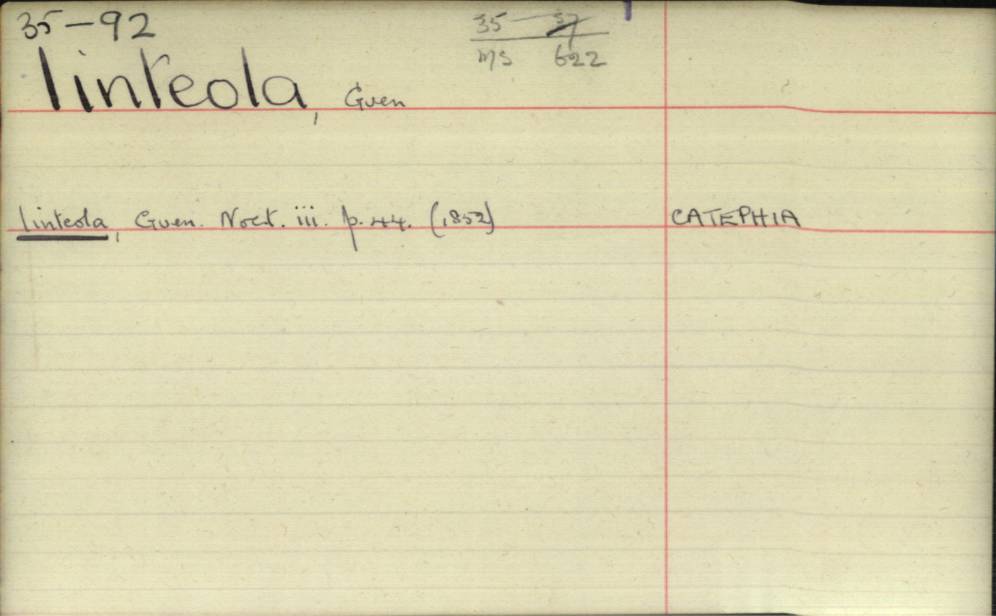 35-92
35 37
MS 622
linteola, Guen
linteola, Guen. Noct. iii. p. 44. (1852) CATEPHIA